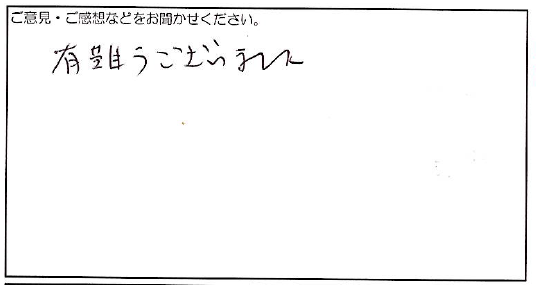 ご意見・ご感想などをお聞かせください。
有難うございました